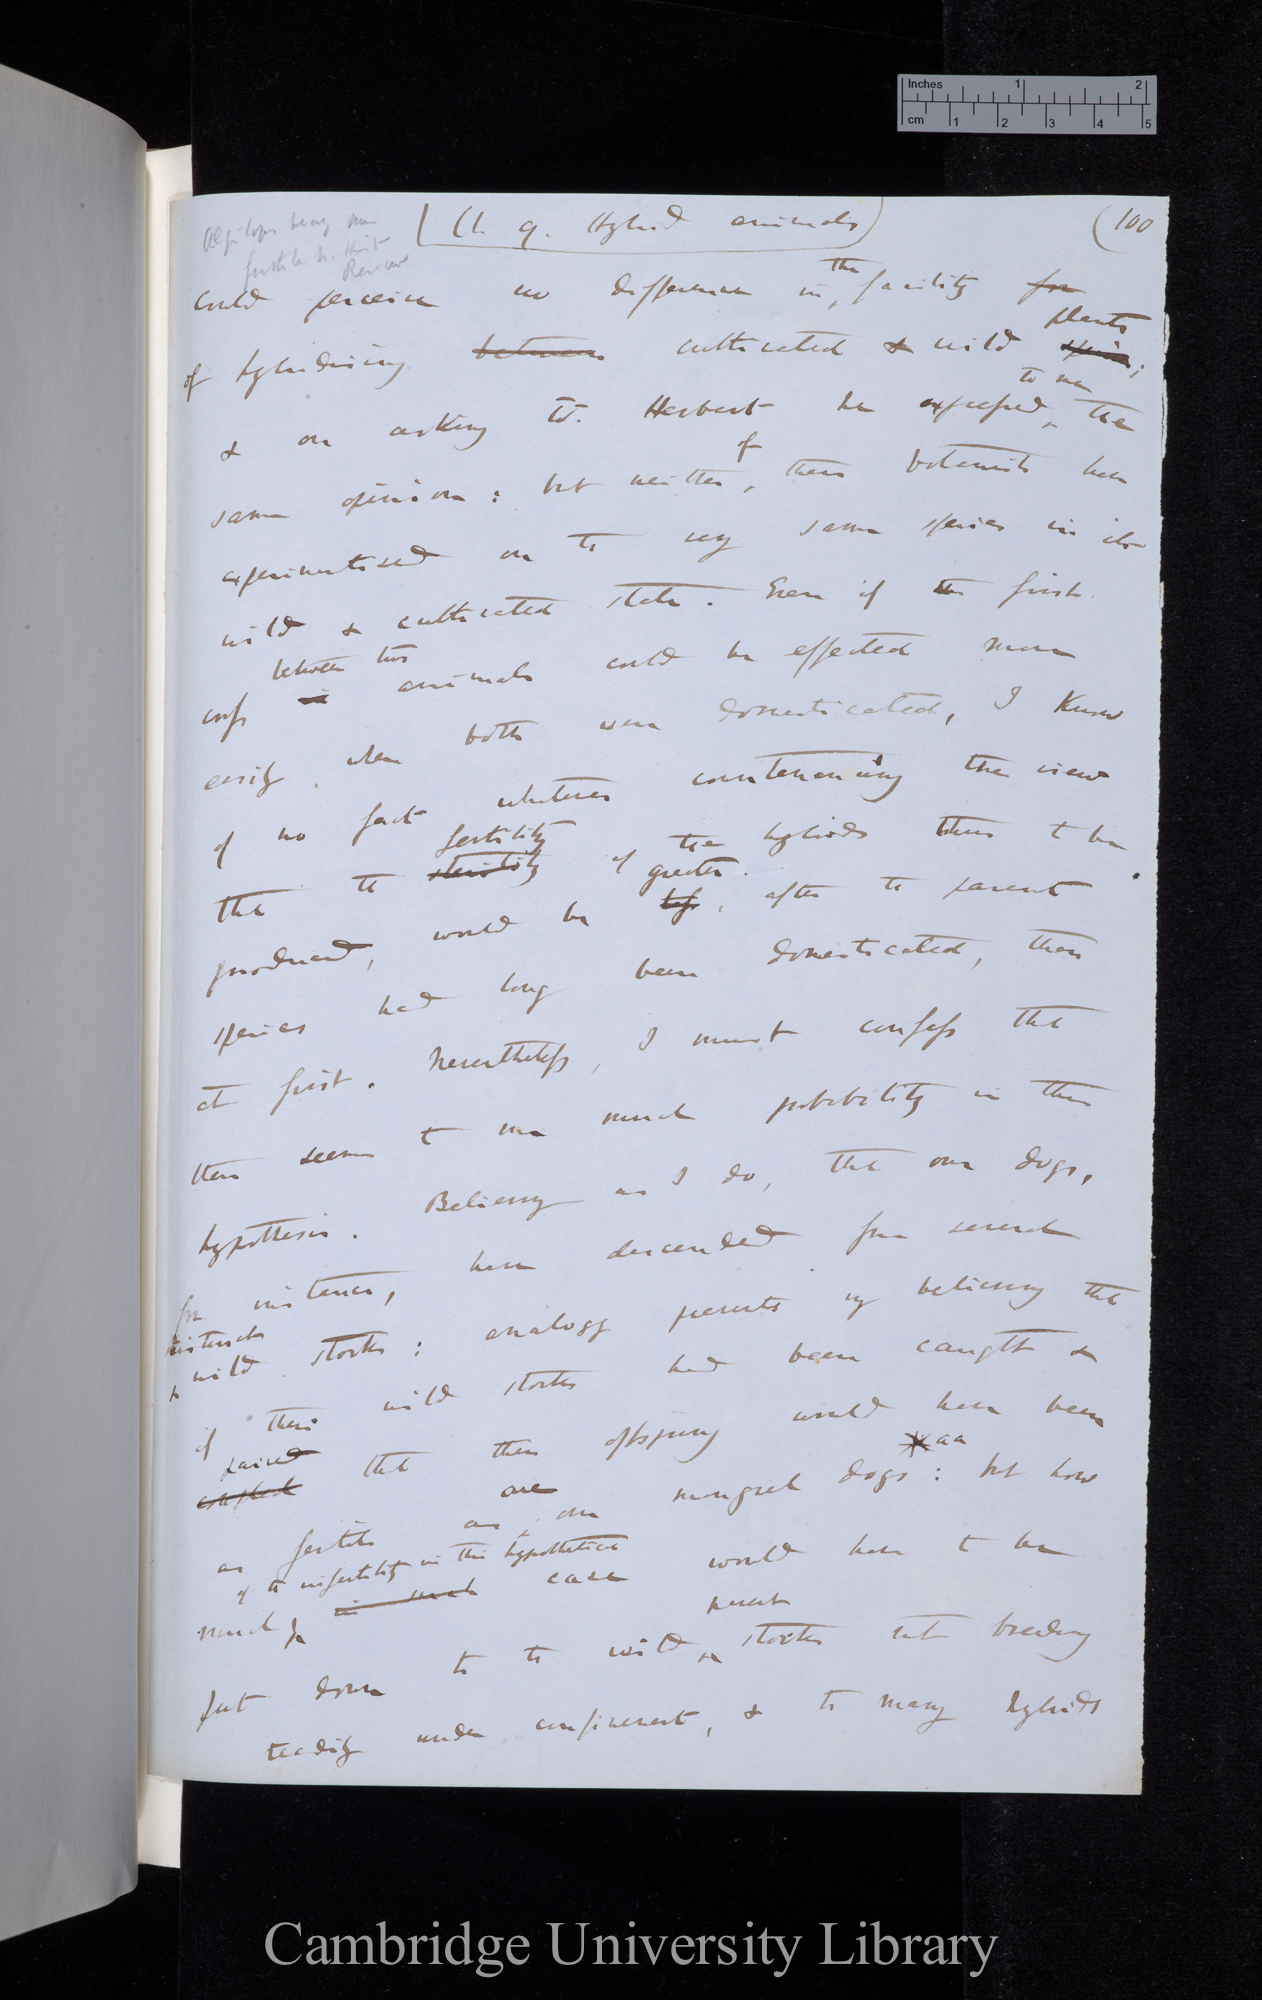 Inches 1 2
cm 1 2 3 4 5
Ch. 9. Hybrid animals
(100
Ægilops being
fertile
Review
could perceive no difference in the facility for
of hybridising between cultivated & wild plants;
& on asking Dr. Herbert he expressed to me the
same opinion: but neither of these botanists have
experimentised on the very same species in its
wild & cultivated state. Even if the first
cross between two animals could be effected more
easily, when both were domesticated, I know
of no fact whatever countenancing the view
that the sterility fertility of the hybrids thus to be
produced, would be less greater, after the parent
species had long been domesticated, than
at first. Nevertheless, I must confess that
there seems to me much probability in this
hypothesis. Believing as I do, that our dogs,
for instance, have descended from several
distinct
& wild stocks; analogy prevents my believing that
if these wild stocks had been caught &
crossed paired that their offspring would have been
as fertile as are our mongrel dogs: but how
aa
much of the infertility in this hypothetical in such case would have to be
put down to the wild parent stocks not breeding
readily under confinement, & to many hybrids
Cambridge University Library